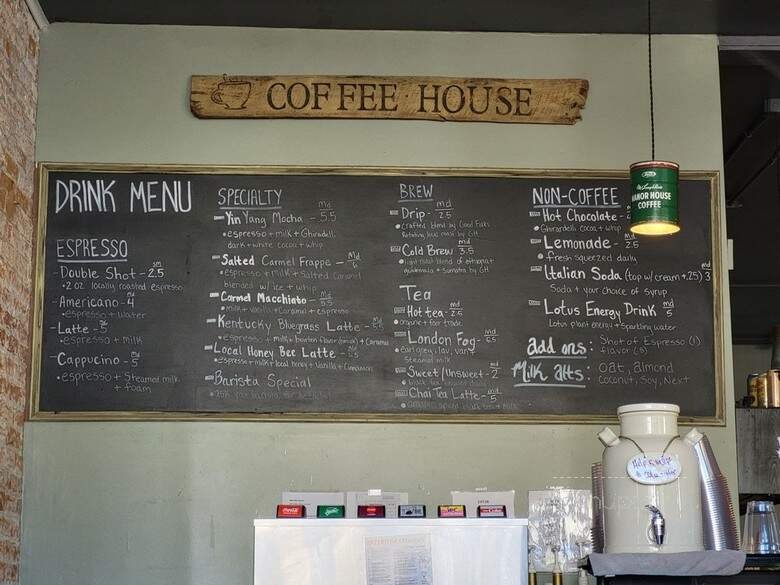 COFFEE HOUSE
DRINK MENU
ESPRESSO
sm
- Double Shot - 2.5
• 2 oz locally roasted espresso
- Americano - 4
• espresso + water
- Latte - 5
• espresso + milk
md
- Cappucino - 5
• espresso + Steamed milk
+ foam
SPECIALTY
md
- Yin Yang Mocha - 5.5
• espresso + milk + Ghiradelli
dark + white cocoa + whip
Md
- Salted Carmel Frappe - 6
• espresso + milk + Salted Caramel
blended w/ ice + whip
md
- Carmel Macchiato - 5.5
• milk + vanilla + Caramel + espresso
- Kentucky Bluegrass Latte -
• espresso + milk + bourbon flavor + Caramel
- Local Honey Bee Latte -
• espresso + milk + local honey + Vanilla + Cinnamon
Barista Special
BREW
md
Drip - 2.5
• crafted blend by Good Folks
Rotating local roast by GH
md
Cold Brew 3.5
• light roast blend of ethiopia +
guatemala + Sumatra by GH
Tea
md
Hot tea - 2.5
• organic + fair trade
md
London Fog - 6.5
• earl grey, lav, van +
Steamed milk
md
Sweet/Unsweet - 2
md
Chai Tea Latte - 5
NON-COFFEE
Hot Chocolate -
• Ghirardelli cocoa + whip
md
- Lemonade - 2.5
• fresh squeezed daily
md
- Italian Soda (top w/ cream +.25) 3
Soda + your choice of syrup
md
- Lotus Energy Drink 5
Lotus plant energy + Sparkling water
add ons: Shot of Espresso (1)
flavor (.5)
Milk alts: Oat, almond
Coconut, Soy, Next
MANOR HOUSE
COFFEE